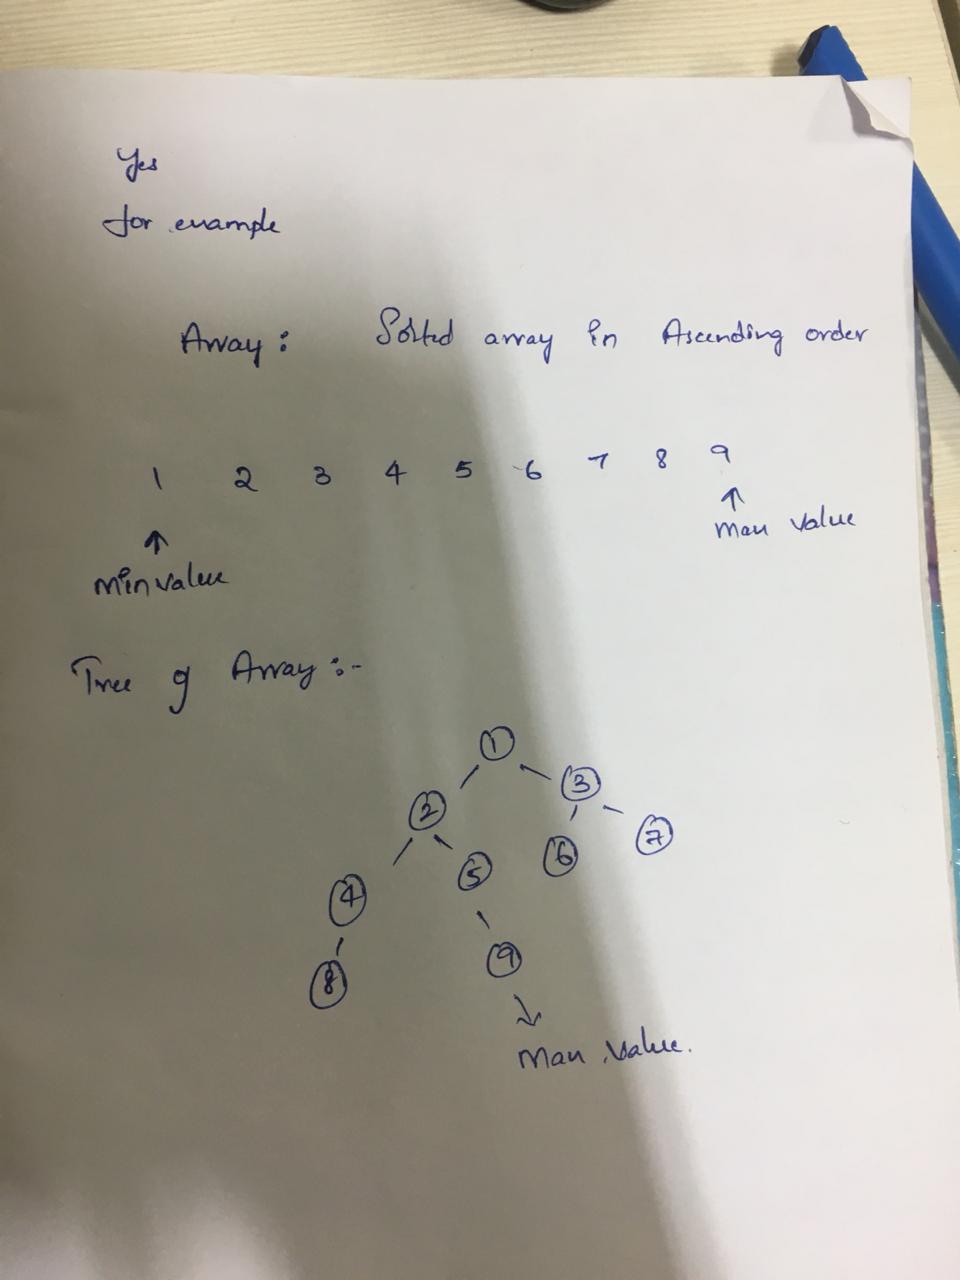 Yes
for example
Array: Sorted array in Ascending order
1 2 3 4 5 6 7 8 9
Max value
Min value
Tree of Array :-
1
2 3
4 5 6 7
8 9
Max value.